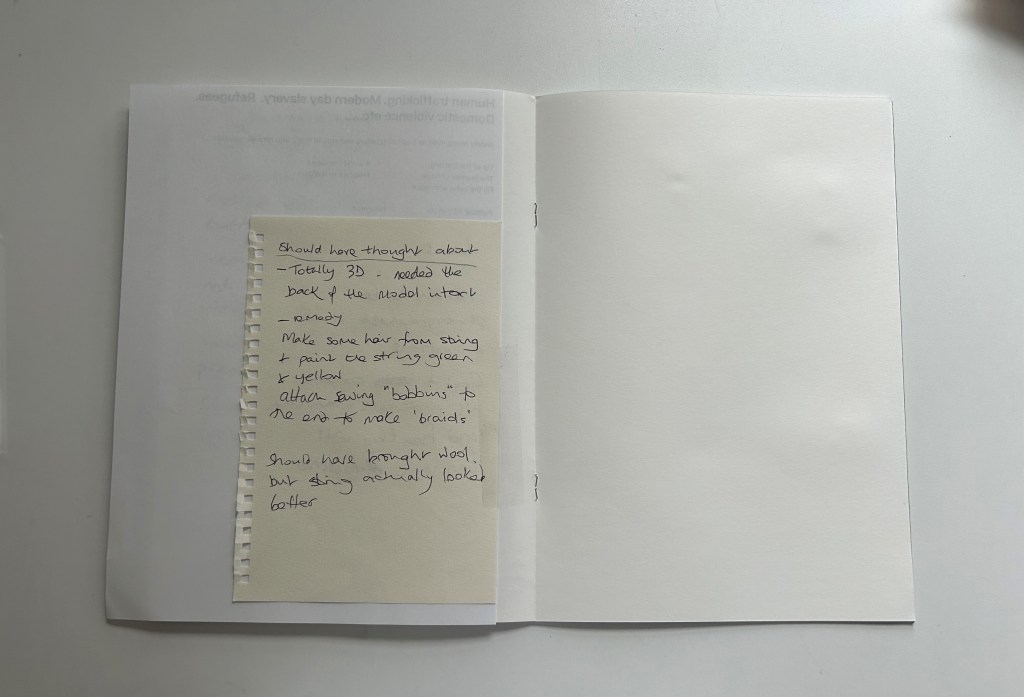 Human trafficking. Modern day slavery. Refugees.
Domestic violence etc...
Should have thought about
- Totally 3D. needed the
back of the model intact
- remedy
Make some hair from string
+ paint the string green
& yellow
attach sewing "bobbins" to
the end to make 'braids'
Should have brought wool.
but string actually looked
better